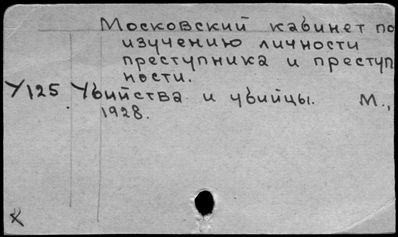 Московский кабинет по
изучению личности
преступника и преступ
ности.
У125 Убийства и убийцы. М.,
1928.